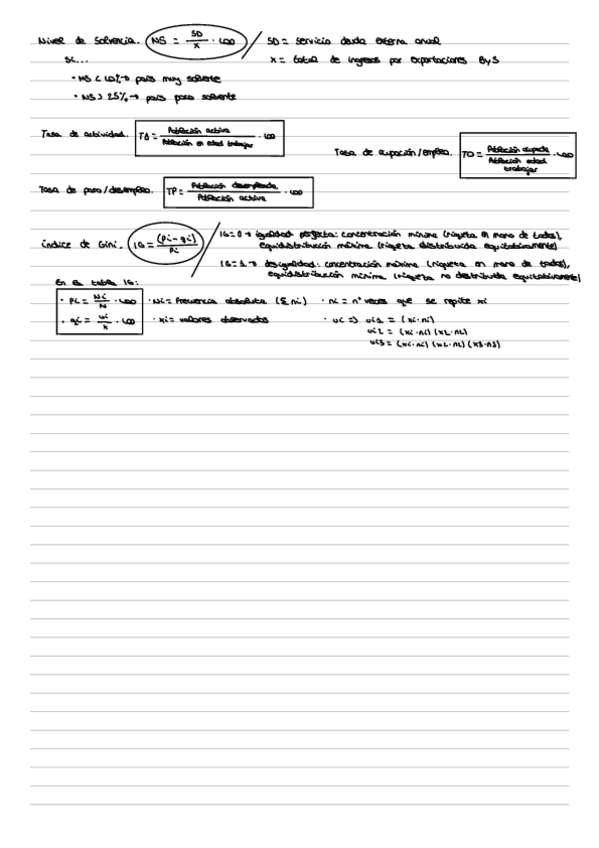 Nivel de solvencia. NS = SD/X · 100 / SD = servicio deuda externa anual
Si... X = total de ingresos por exportaciones ByS
· NS < 10% → país muy solvente
· NS > 25% → país poco solvente
Tasa de actividad. TA = Población activa/Población en edad trabajar · 100
Tasa de ocupación/empleo. TO = Población ocupada/Población edad trabajar · 100
Tasa de paro/desempleo. TP = Población desempleada/Población activa · 100
Índice de Gini. IG = (Pi - qi)/Pi / IG = 0 → igualdad perfecta: concentración mínima (riqueza en mano de todos),
equidistribución máxima (riqueza distribuida equitativamente)
IG = 1 → desigualdad: concentración máxima (riqueza en mano de todos),
equidistribución mínima (riqueza no distribuida equitativamente)
En la tabla IG:
· Pi = Ni/N · 100 · Ni = Frecuencia absoluta (Σ ni) · ni = nº veces que se repite xi
· qi = ui/x · 100 · xi = valores observados · ui => ui1 = (xi·ni)
ui2 = (xi·ni) (x2·n2)
ui3 = (xi·ni) (x2·n2) (x3·n3)